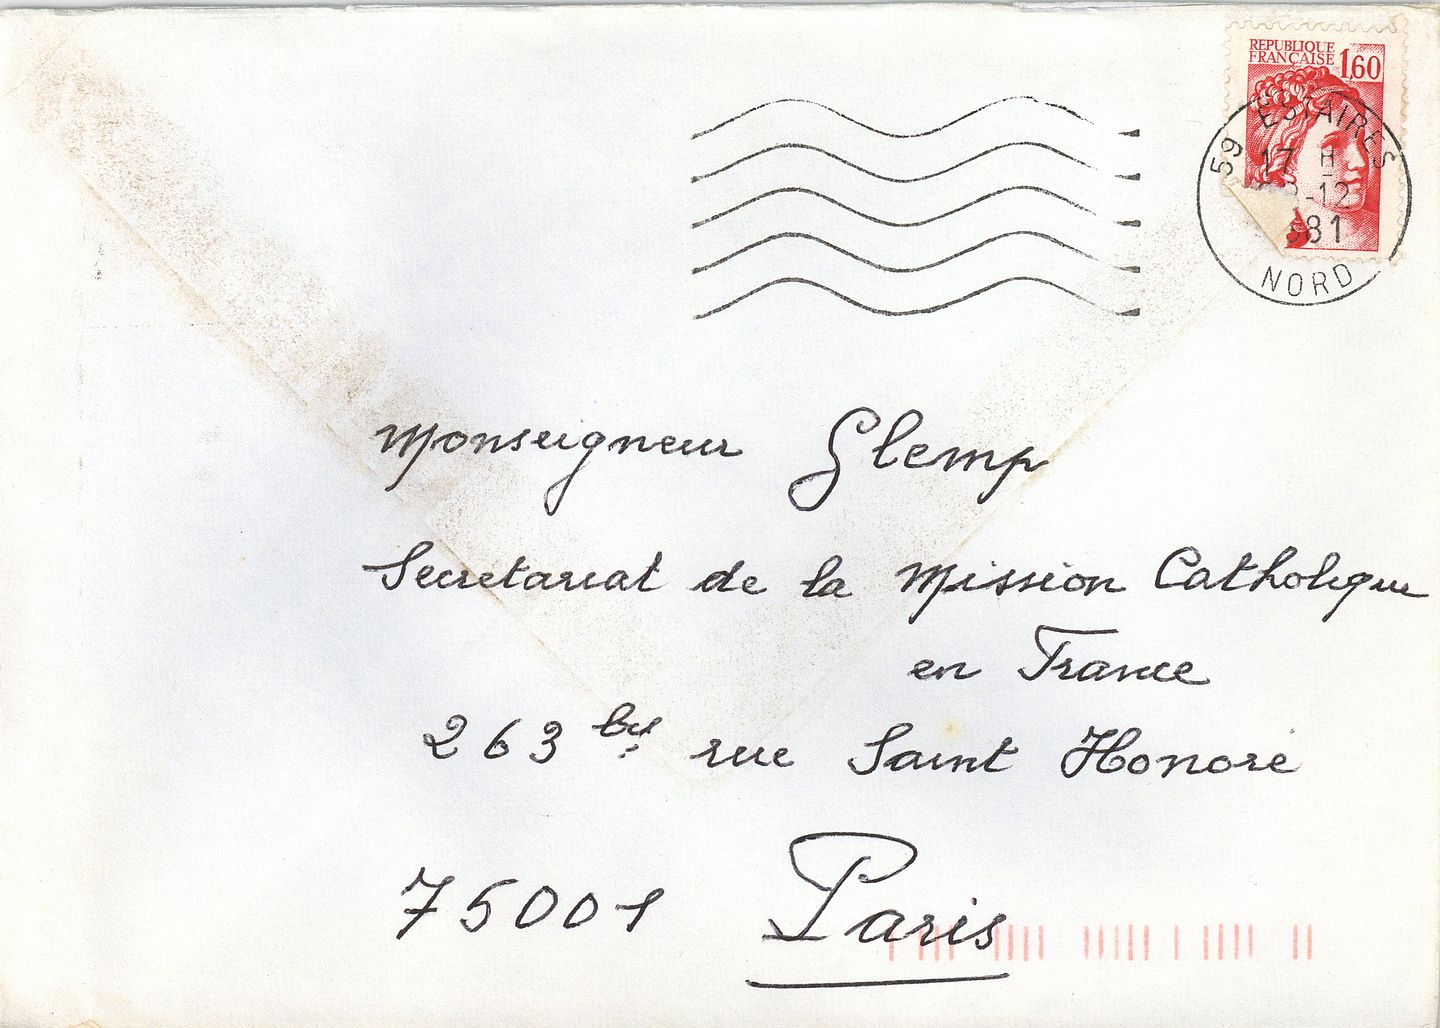 REPUBLIQUE
FRANÇAISE
1,60
59 ESTAIRES
17 H
-12
1981
NORD
Monseigneur Glemp
Secretariat de la Mission Catholique
en France
263 bis rue Saint Honoré
75001 Paris